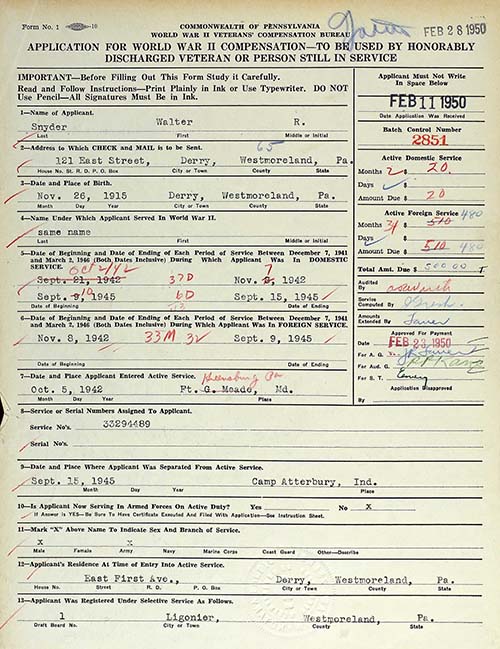 Form No. 1 10
COMMONWEALTH OF PENNSYLVANIA
WORLD WAR II VETERANS' COMPENSATION BUREAU
FEB 28 1950
APPLICATION FOR WORLD WAR II COMPENSATION—TO BE USED BY HONORABLY
DISCHARGED VETERAN OR PERSON STILL IN SERVICE
IMPORTANT—Before Filling Out This Form Study it Carefully.
Read and Follow Instructions—Print Plainly in Ink or Use Typewriter. DO NOT
Use Pencil—All Signatures Must Be in Ink.
Applicant Must Not Write
In Space Below
FEB 11 1950
Date Application Was Received
Batch Control Number
2851
1—Name of Applicant.
Snyder Walter R.
Last First Middle or Initial
2—Address to Which CHECK and MAIL is to be Sent.
65
121 East Street, Derry, Westmoreland, Pa.
House No. St. R. D. P. O. Box City or Town County State
Active Domestic Service
Months 2 $ 20.
Days
Amount Due $ 20
3—Date and Place of Birth.
Nov. 26, 1915 Derry, Westmoreland, Pa.
Month Day Year City or Town County State
Active Foreign Service 480
Months $ 510
Days
Amount Due $ 510 480
4—Name Under Which Applicant Served In World War II.
same name
Last First Middle or Initial
5—Date of Beginning and Date of Ending of Each Period of Service Between December 7, 1941
and March 2, 1946 (Both Dates Inclusive) During Which Applicant Was In DOMESTIC
SERVICE.
Oct 5/42 7
Sept. 21, 1942 37D Nov. 8, 1942
10
Sept. 9, 1945 6D Sept. 15, 1945
Date of Beginning Date of Ending
Total Amt. Due $ 500.00
Audited
By
Service
Computed By
Amounts
Extended By
6—Date of Beginning and Date of Ending of Each Period of Service Between December 7, 1941
and March 2, 1946 (Both Dates Inclusive) During Which Applicant Was In FOREIGN SERVICE.
Nov. 8, 1942 33M Sept. 9, 1945
Date of Beginning Date of Ending
Approved For Payment
Date FEB 23 1950
For A. G.
For Aud. G.
For S. T.
Application Disapproved
By
7—Date and Place Applicant Entered Active Service.
Greensburg Pa
Oct. 5, 1942 Ft. G. Meade, Md.
Month Day Year Place
8—Service or Serial Numbers Assigned To Applicant.
Service No's. 33294489
Serial No's.
9—Date and Place Where Applicant Was Separated From Active Service.
Sept. 15, 1945 Camp Atterbury, Ind.
Month Day Year Place
10—Is Applicant Now Serving In Armed Forces On Active Duty? Yes No X
If Answer Is YES—Be Sure To Have Certificate Executed And Filed With Application—See Instruction Sheet.
11—Mark "X" Above Name To Indicate Sex and Branch of Service.
X X
Male Female Army Navy Marine Corps Coast Guard Other—Describe
12—Applicant's Residence At Time of Entry Into Active Service.
East First Ave., Derry, Westmoreland, Pa.
House No. Street R. D. P. O. Box City or Town County State
13—Applicant Was Registered Under Selective Service As Follows.
1 Ligonier, Westmoreland, Pa.
Draft Board No. City or Town County State